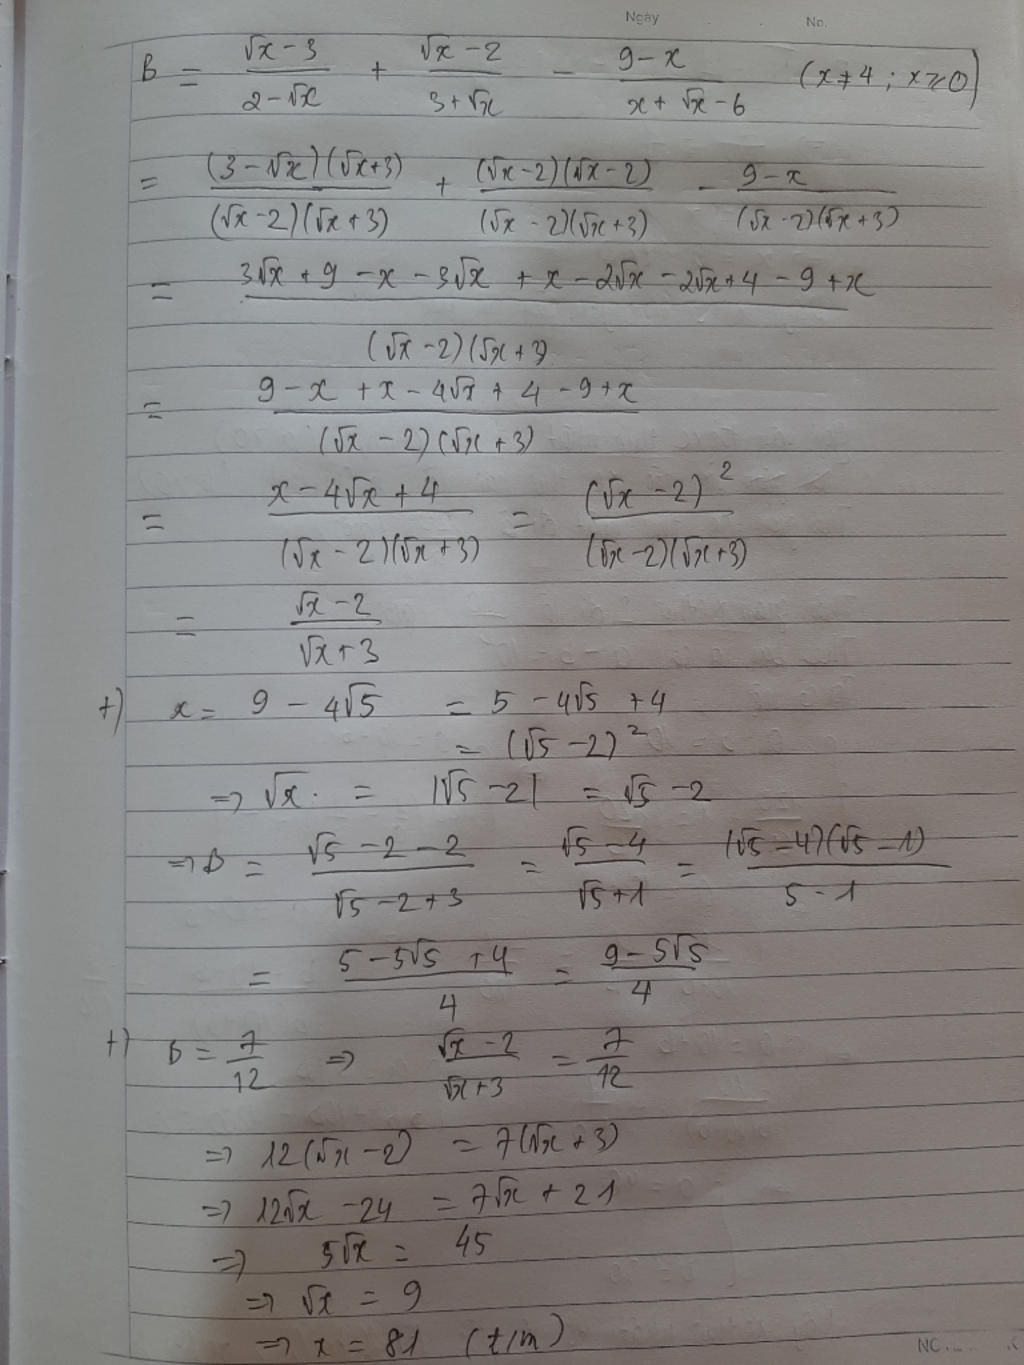 Ngày No.
B = \frac{\sqrt{x} - 3}{2 - \sqrt{x}} + \frac{\sqrt{x} - 2}{3 + \sqrt{x}} - \frac{9 - x}{x + \sqrt{x} - 6} (x ≠ 4 ; x ≥ 0)
= \frac{(3 - \sqrt{x})(\sqrt{x} + 3)}{(\sqrt{x} - 2)(\sqrt{x} + 3)} + \frac{(\sqrt{x} - 2)(\sqrt{x} - 2)}{(\sqrt{x} - 2)(\sqrt{x} + 3)} - \frac{9 - x}{(\sqrt{x} - 2)(\sqrt{x} + 3)}
= \frac{3\sqrt{x} + 9 - x - 3\sqrt{x} + x - 2\sqrt{x} - 2\sqrt{x} + 4 - 9 + x}{(\sqrt{x} - 2)(\sqrt{x} + 3)}
= \frac{9 - x + x - 4\sqrt{x} + 4 - 9 + x}{(\sqrt{x} - 2)(\sqrt{x} + 3)}
= \frac{x - 4\sqrt{x} + 4}{(\sqrt{x} - 2)(\sqrt{x} + 3)} = \frac{(\sqrt{x} - 2)^2}{(\sqrt{x} - 2)(\sqrt{x} + 3)}
= \frac{\sqrt{x} - 2}{\sqrt{x} + 3}
+) x = 9 - 4\sqrt{5} = 5 - 4\sqrt{5} + 4
= (\sqrt{5} - 2)^2
⇒ \sqrt{x} = |\sqrt{5} - 2| = \sqrt{5} - 2
⇒ B = \frac{\sqrt{5} - 2 - 2}{\sqrt{5} - 2 + 3} = \frac{\sqrt{5} - 4}{\sqrt{5} + 1} = \frac{(\sqrt{5} - 4)(\sqrt{5} - 1)}{5 - 1}
= \frac{5 - 5\sqrt{5} + 4}{4} = \frac{9 - 5\sqrt{5}}{4}
+) B = \frac{7}{12} ⇒ \frac{\sqrt{x} - 2}{\sqrt{x} + 3} = \frac{7}{12}
⇒ 12(\sqrt{x} - 2) = 7(\sqrt{x} + 3)
⇒ 12\sqrt{x} - 24 = 7\sqrt{x} + 21
⇒ 5\sqrt{x} = 45
⇒ \sqrt{x} = 9
⇒ x = 81 (t/m)